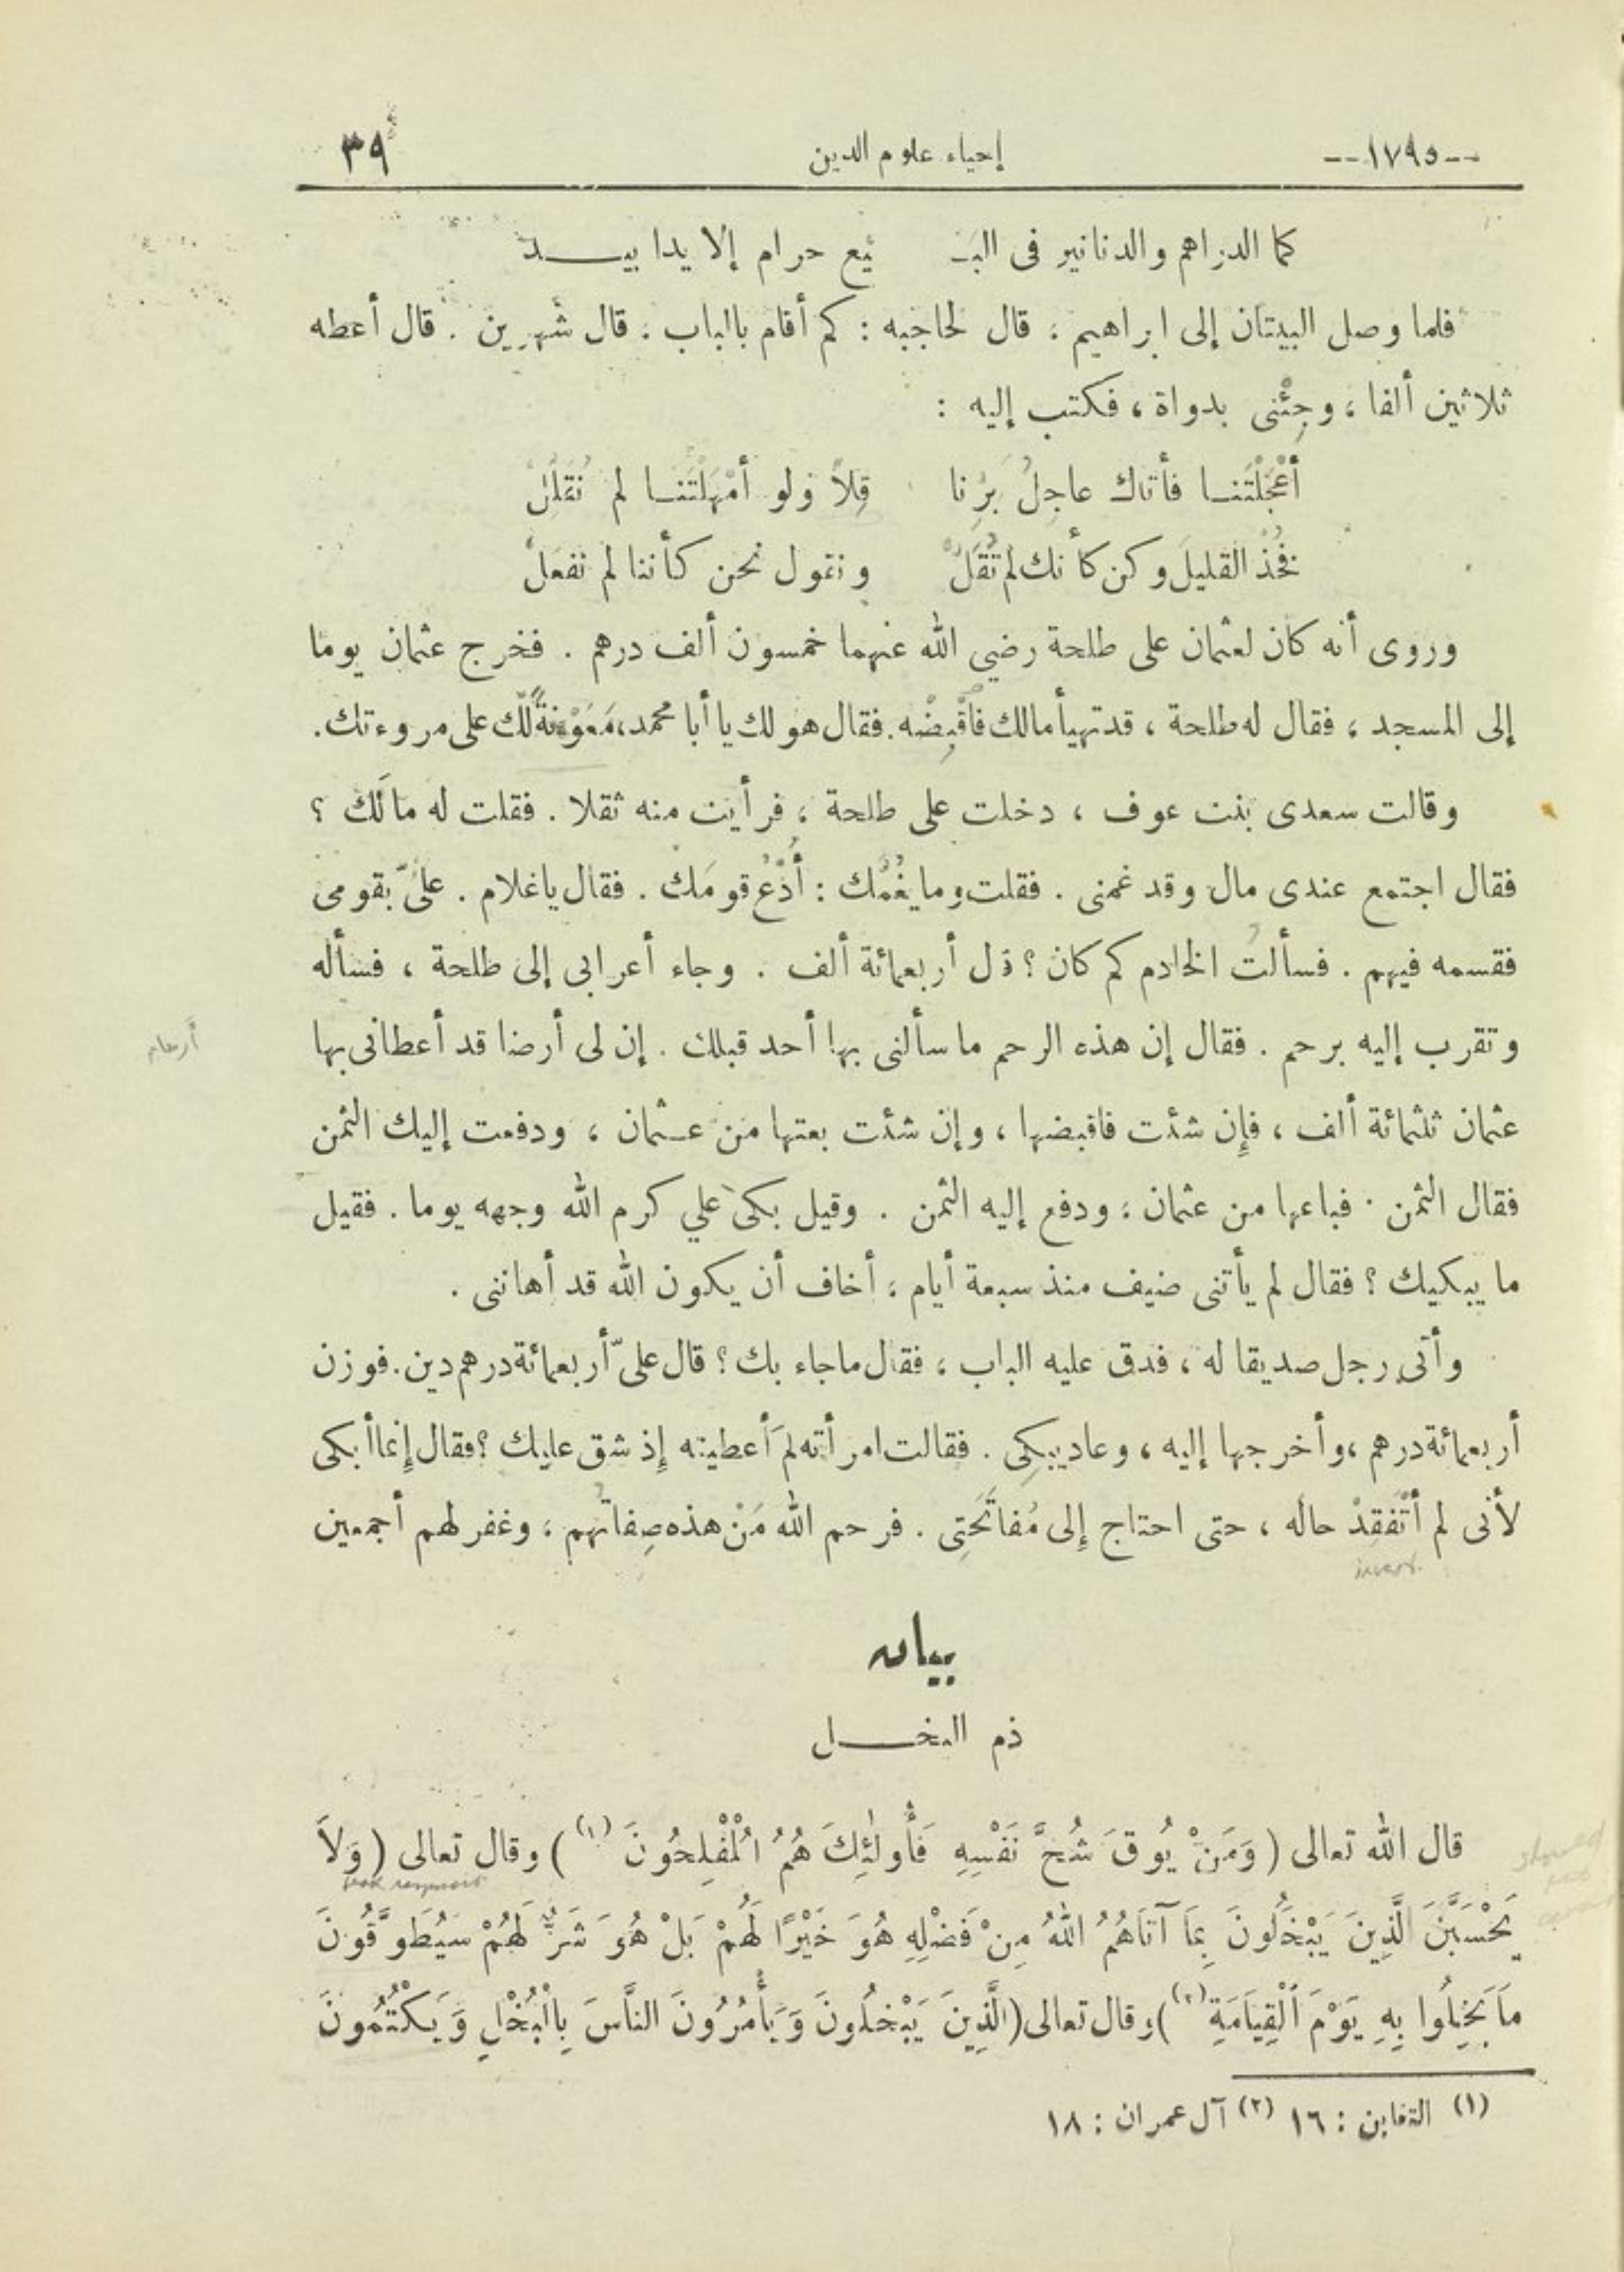 --١٧٩٥-- إحياء علوم الدين ٣٩
كما الدراهم والدنانير فى البَـ ـيْع حرام إلا يدا بيـــد
فلما وصل البيتان إلى ابراهيم ، قال لحاجبه : كم أقام بالباب . قال شهرين . قال أعطه
ثلاثين ألفا ، وجِئْنى بدواة ، فكتب إليه :
أعْجَلْتَنـا فأتاك عاجِلُ بَرِّنا قِلاًّ ولو أمْهَلْتَنـا لم نُقَلِّلْ
فخُذْ القليلَ وكن كأنك لم تَقُلْ ونقول نحن كأننا لم نفعَلْ
وروى أنه كان لعثمان على طلحة رضي الله عنهما خمسون ألف درهم . فخرج عثمان يوما
إلى المسجد ، فقال له طلحة ، قد تهيأ مالك فاقْبِضْه . فقال هو لك يا أبا محمد، مَعُوْنَةً لَكَ على مروءتك.
وقالت سعدى بنت عوف ، دخلت على طلحة ، فرأيت منه ثقلا . فقلت له مالَكَ ؟
فقال اجتمع عندى مال وقد غمنى . فقلت وما يغُمُّك : أُدْعُ قومَك . فقال ياغلام . علىَّ بقومى
فقسمه فيهم . فسألتُ الخادم كم كان ؟ قال أربعمائة ألف . وجاء أعرابى إلى طلحة ، فسأله
وتقرب إليه برحم . فقال إن هذه الرحم ما سألنى بها أحد قبلك . إن لى أرضا قد أعطانى بها
أرحام
عثمان ثلثمائة ألف ، فإن شئت فاقبضها ، وإن شئت بعتها من عـثمان ، ودفعت إليك الثمن
فقال الثمن . فباعها من عثمان ، ودفع إليه الثمن . وقيل بكى علي كرم الله وجهه يوما . فقيل
ما يبكيك ؟ فقال لم يأتنى ضيف منذ سبعة أيام ، أخاف أن يكون الله قد أهاننى .
وأتى رجل صديقا له ، فدق عليه الباب ، فقال ماجاء بك ؟ قال علىّ أربعمائة درهم دين . فوزن
أربعمائة درهم ، وأخرجها إليه ، وعاد يبكِى . فقالت امرأته لمَ أعطيته إذ شق عليك ؟ فقال إنما أبكى
لأنى لم أتْفَقِدْ حاله ، حتى احتاج إلى مُفاتَحَتِى . فرحم الله مَنْ هذه صِفاتُهم ، وغفر لهم أجمعين
بيان
ذم البخـــل
قال الله تعالى ( وَمَنْ يُوقَ شُحَّ نَفْسِهِ فَأُولٰئِكَ هُمُ الْمُفْلِحُونَ (١) ) وقال تعالى ( وَلاَ
يَحْسَبَنَّ الَّذِينَ يَبْخَلُونَ بِمَا آتَاهُمُ اللهُ مِنْ فَضْلِهِ هُوَ خَيْرًا لَهُمْ بَلْ هُوَ شَرٌّ لَهُمْ سَيُطَوَّقُونَ
مَا بَخِلُوا بِهِ يَوْمَ الْقِيَامَةِ (٢) ) وقال تعالى ( الَّذِينَ يَبْخلُونَ وَيَأْمُرُونَ النَّاسَ بِالْبُخْلِ وَيَكْتُمُونَ
(١) التغابن : ١٦ (٢) آل عمران : ١٨